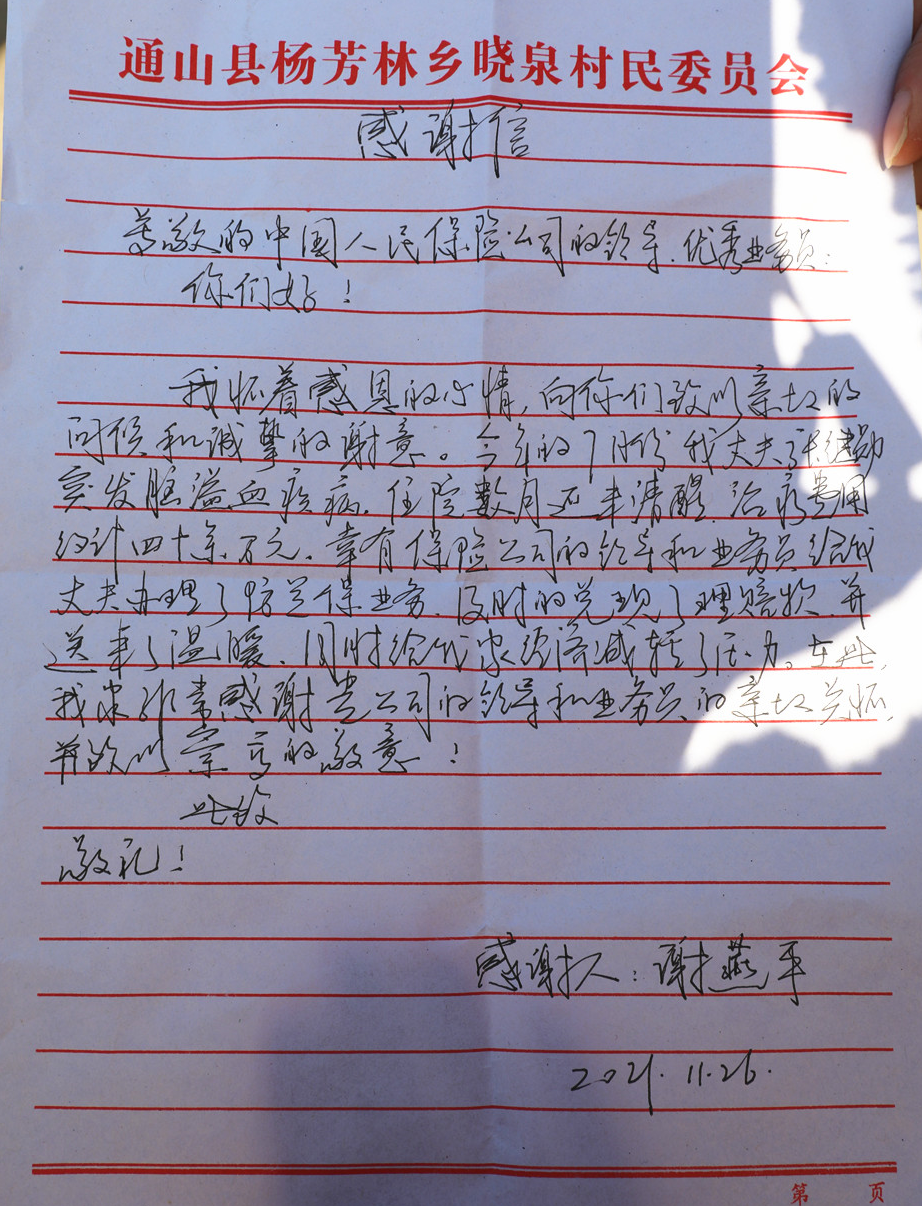 通山县杨芳林乡晓泉村民委员会
感谢信
尊敬的中国人民保险公司的领导、优秀业务员:
你们好!
我怀着感恩的心情,向你们致以亲切的
问候和诚挚的谢意。今年的7月份我丈夫
突发脑溢血疾病,住院数月还未清醒,治疗费用
约计四十余万元。幸有保险公司的领导和业务员给我
丈夫办理了防兰保业务,及时的兑现了理赔款,并
送来了温暖、同时给我家经济减轻了压力。在此,
我家非常感谢贵公司的领导和业务员的亲切关怀,
并致以崇高的敬意!
此致
敬礼!
感谢人:谢燕平
2021.11.26.
第 页